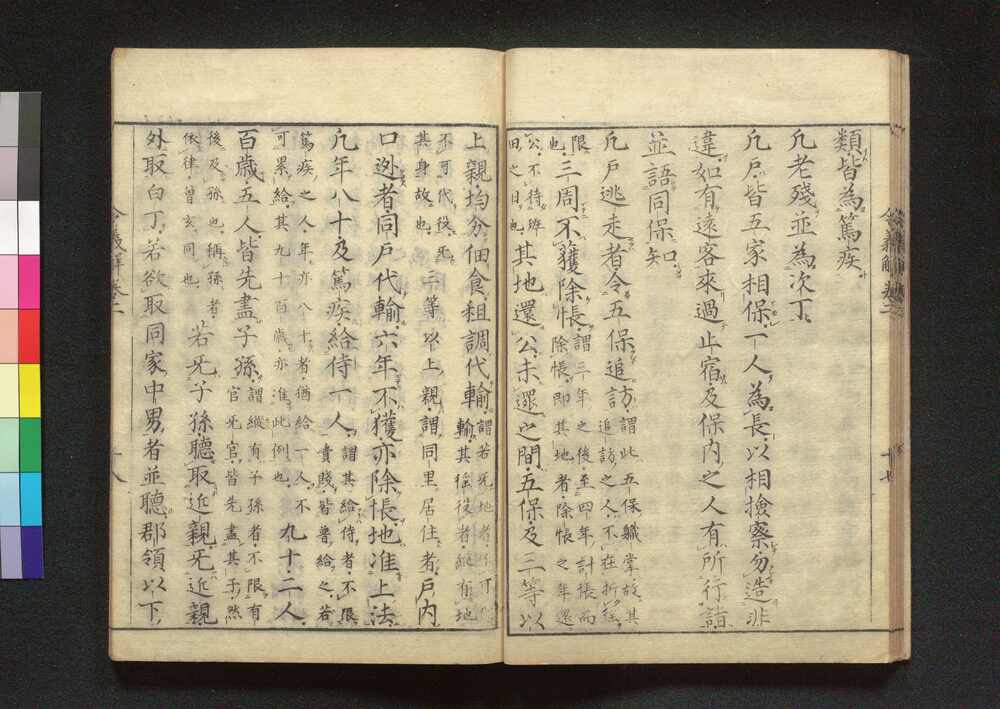 類皆為篤疾
凡老殘並為次丁
凡戸皆五家相保一人為長以相撿察勿造非
違如有遠客來過止宿及保内之人有所行詣
並語同保知
凡戸逃走者令五保追訪謂此五保職掌故其追訪之人不在折
限也三周不獲除帳謂三年之後至四年計帳而除帳即其地者除帳之年還
公不待班田之日也其地還公未還之間五保及三等以
上親均分佃食租調代輸謂若死地者輸其徭役者縱有地
不可代役死其身故也三等以上親謂同里居住者戸内
口逃者同戸代輸六年不獲亦除帳地准上法
凡年八十及篤疾給侍一人謂其給侍者不限貴賤皆普給之若
篤疾之人年亦八十者猶給一人不可累給其九十百歳亦准此例也九十二人
百歳五人皆先盡子孫謂縱有子孫者不限有官无官皆先盡其子然
後及孫也稱孫者依律曾玄同也若无子孫聽取近親无近親
外取白丁若欲取同家中男者並聽郡領以下